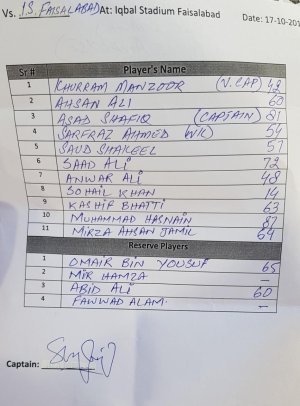 Vs. I.S. FAISALABAD At: Iqbal Stadium Faisalabad
Date: 17-10-201
Sr # Player's Name
1 KHURRAM MANZOOR (V.CAP) 42
2 AHSAN ALI 60
3 ASAD SHAFIQ (CAPTAIN) 81
4 SARFRAZ AHMED WK) 54
5 SAUD SHAKEEL 57
6 SAAD ALI 72
7 ANWAR ALI 48
8 SOHAIL KHAN 14
9 KASHIF BHATTI 63
10 MUHAMMAD HASNAIN 87
11 MIRZA AHSAN JAMIL 64
Reserve Players
1 OMAIR BIN YOUSUF 65
2 MIR HAMZA –
3 ABID ALI 60
4 FAWWAD ALAM. –
Captain: